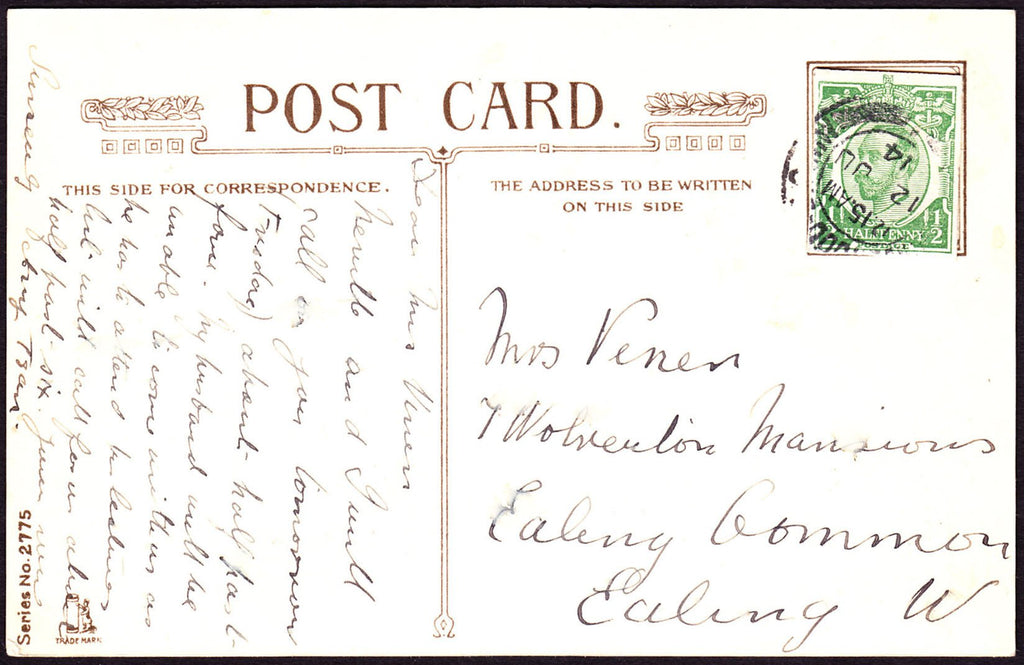 POST CARD.
THIS SIDE FOR CORRESPONDENCE.
THE ADDRESS TO BE WRITTEN
ON THIS SIDE
HALFPENNY
POSTAGE
1/2
15AM
12 JU
14
Dear Mrs Venen
and I will
call on you tomorrow
Tuesday) about half past
four. My husband will be
unable to come with us as
he has to attend
but will call for us about
half past six. Yours very
Sincerely
Mrs Venen
7 Wolverton Mansions
Ealing Common
Ealing W
Series No. 2775
TRADE MARK